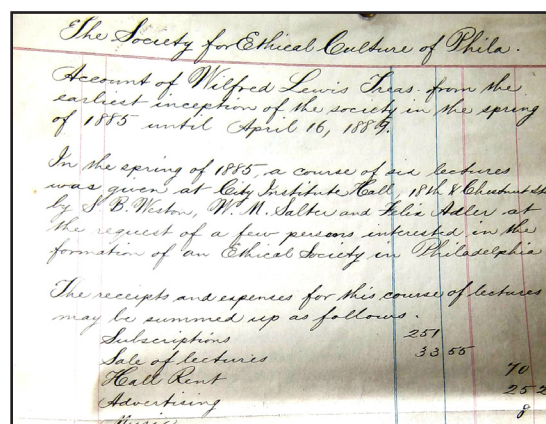 The Society for Ethical Culture of Phila.
Account of Wilfred Lewis Treas. from the
earliest inception of the society in the spring
of 1885 until April 16, 1889.
In the spring of 1885, a course of six lectures
was given at City Institute Hall, 18th & Chestnut st
by S. B. Weston, W. M. Salter and Felix Adler at
the request of a few persons interested in the
formation of an Ethical Society in Philadelphia
The receipts and expenses for this course of lectures
may be summed up as follows.
Subscriptions 251
Sale of lectures 33 55
Hall Rent 70
Advertising 25 2
Music 8